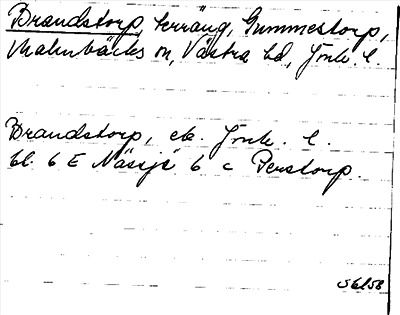 Brandstorp, terräng, Gummestorp,
Malmbäcks sn, Västra hd, Jönk. l.
Brandstorp, ek. Jönk. l.
bl. 6 E Nässjö 6 c Perstorp.